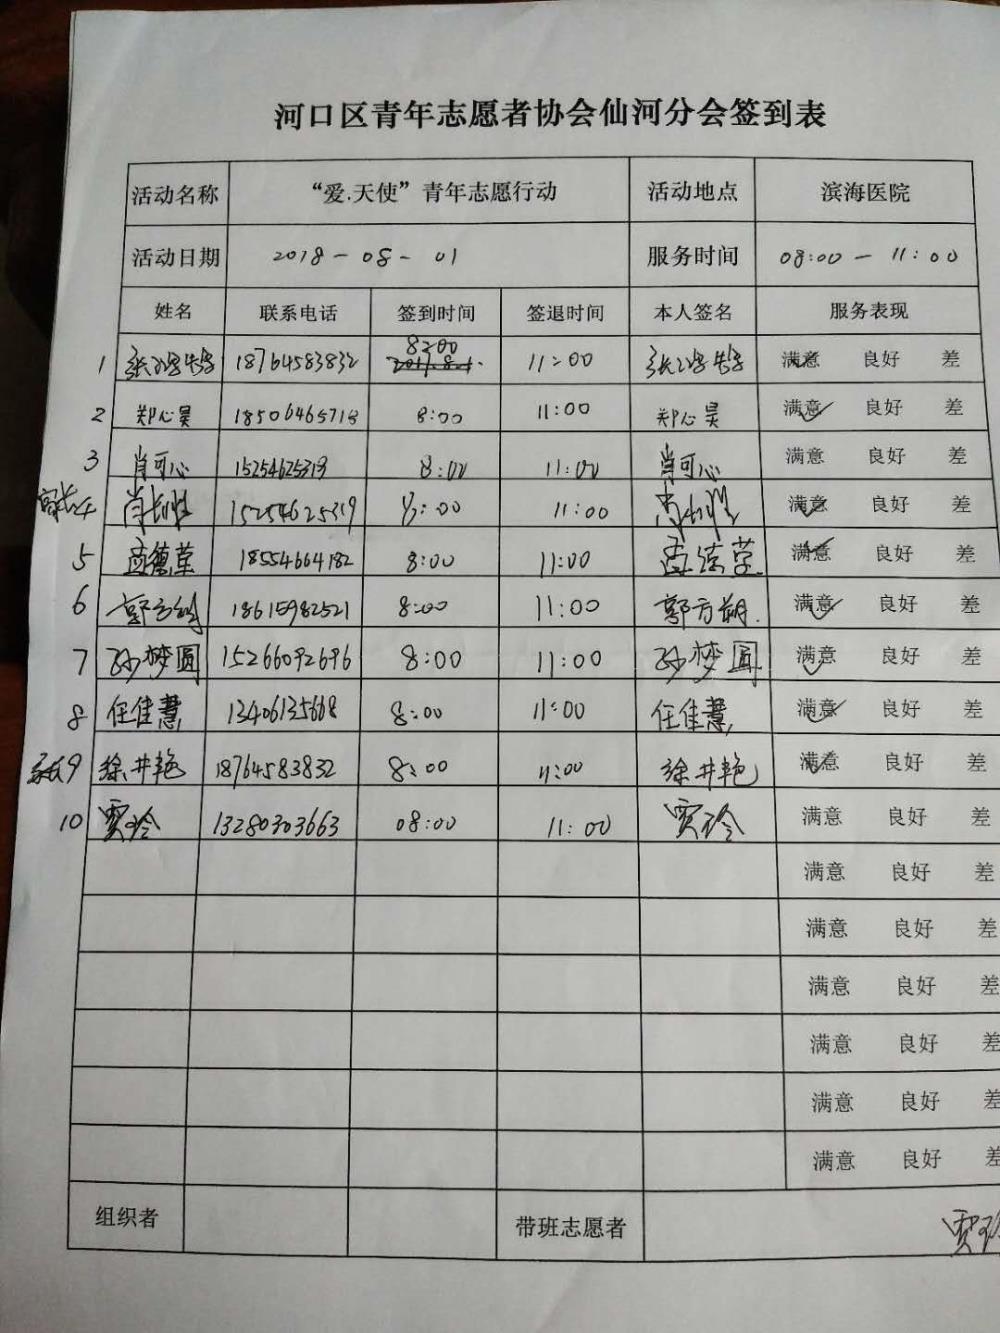 河口区青年志愿者协会仙河分会签到表
活动名称 “爱.天使”青年志愿行动 活动地点 滨海医院
活动日期 2018-08-01 服务时间 08:00-11:00
姓名 联系电话 签到时间 签退时间 本人签名 服务表现
1 18764583832 8:00 11:00 满意 良好 差
2 郑心昊 18506465713 8:00 11:00 郑心昊 满意 良好 差
3 肖可心 15254625319 8:00 11:00 肖可心 满意 良好 差
家长4 15254625319 8:00 11:00 满意 良好 差
5 孟德莹 18554664182 8:00 11:00 孟德莹 满意 良好 差
6 郭方朔 18615982521 8:00 11:00 郭方朔 满意 良好 差
7 孙梦圆 15266092696 8:00 11:00 孙梦圆 满意 良好 差
8 任佳慧 13406135668 8:00 11:00 任佳慧 满意 良好 差
家长9 徐井艳 18764583832 8:00 11:00 徐井艳 满意 良好 差
10 贾玲 13280303663 08:00 11:00 贾玲 满意 良好 差
满意 良好 差
满意 良好 差
满意 良好 差
满意 良好 差
满意 良好 差
满意 良好 差
组织者 带班志愿者 贾玲